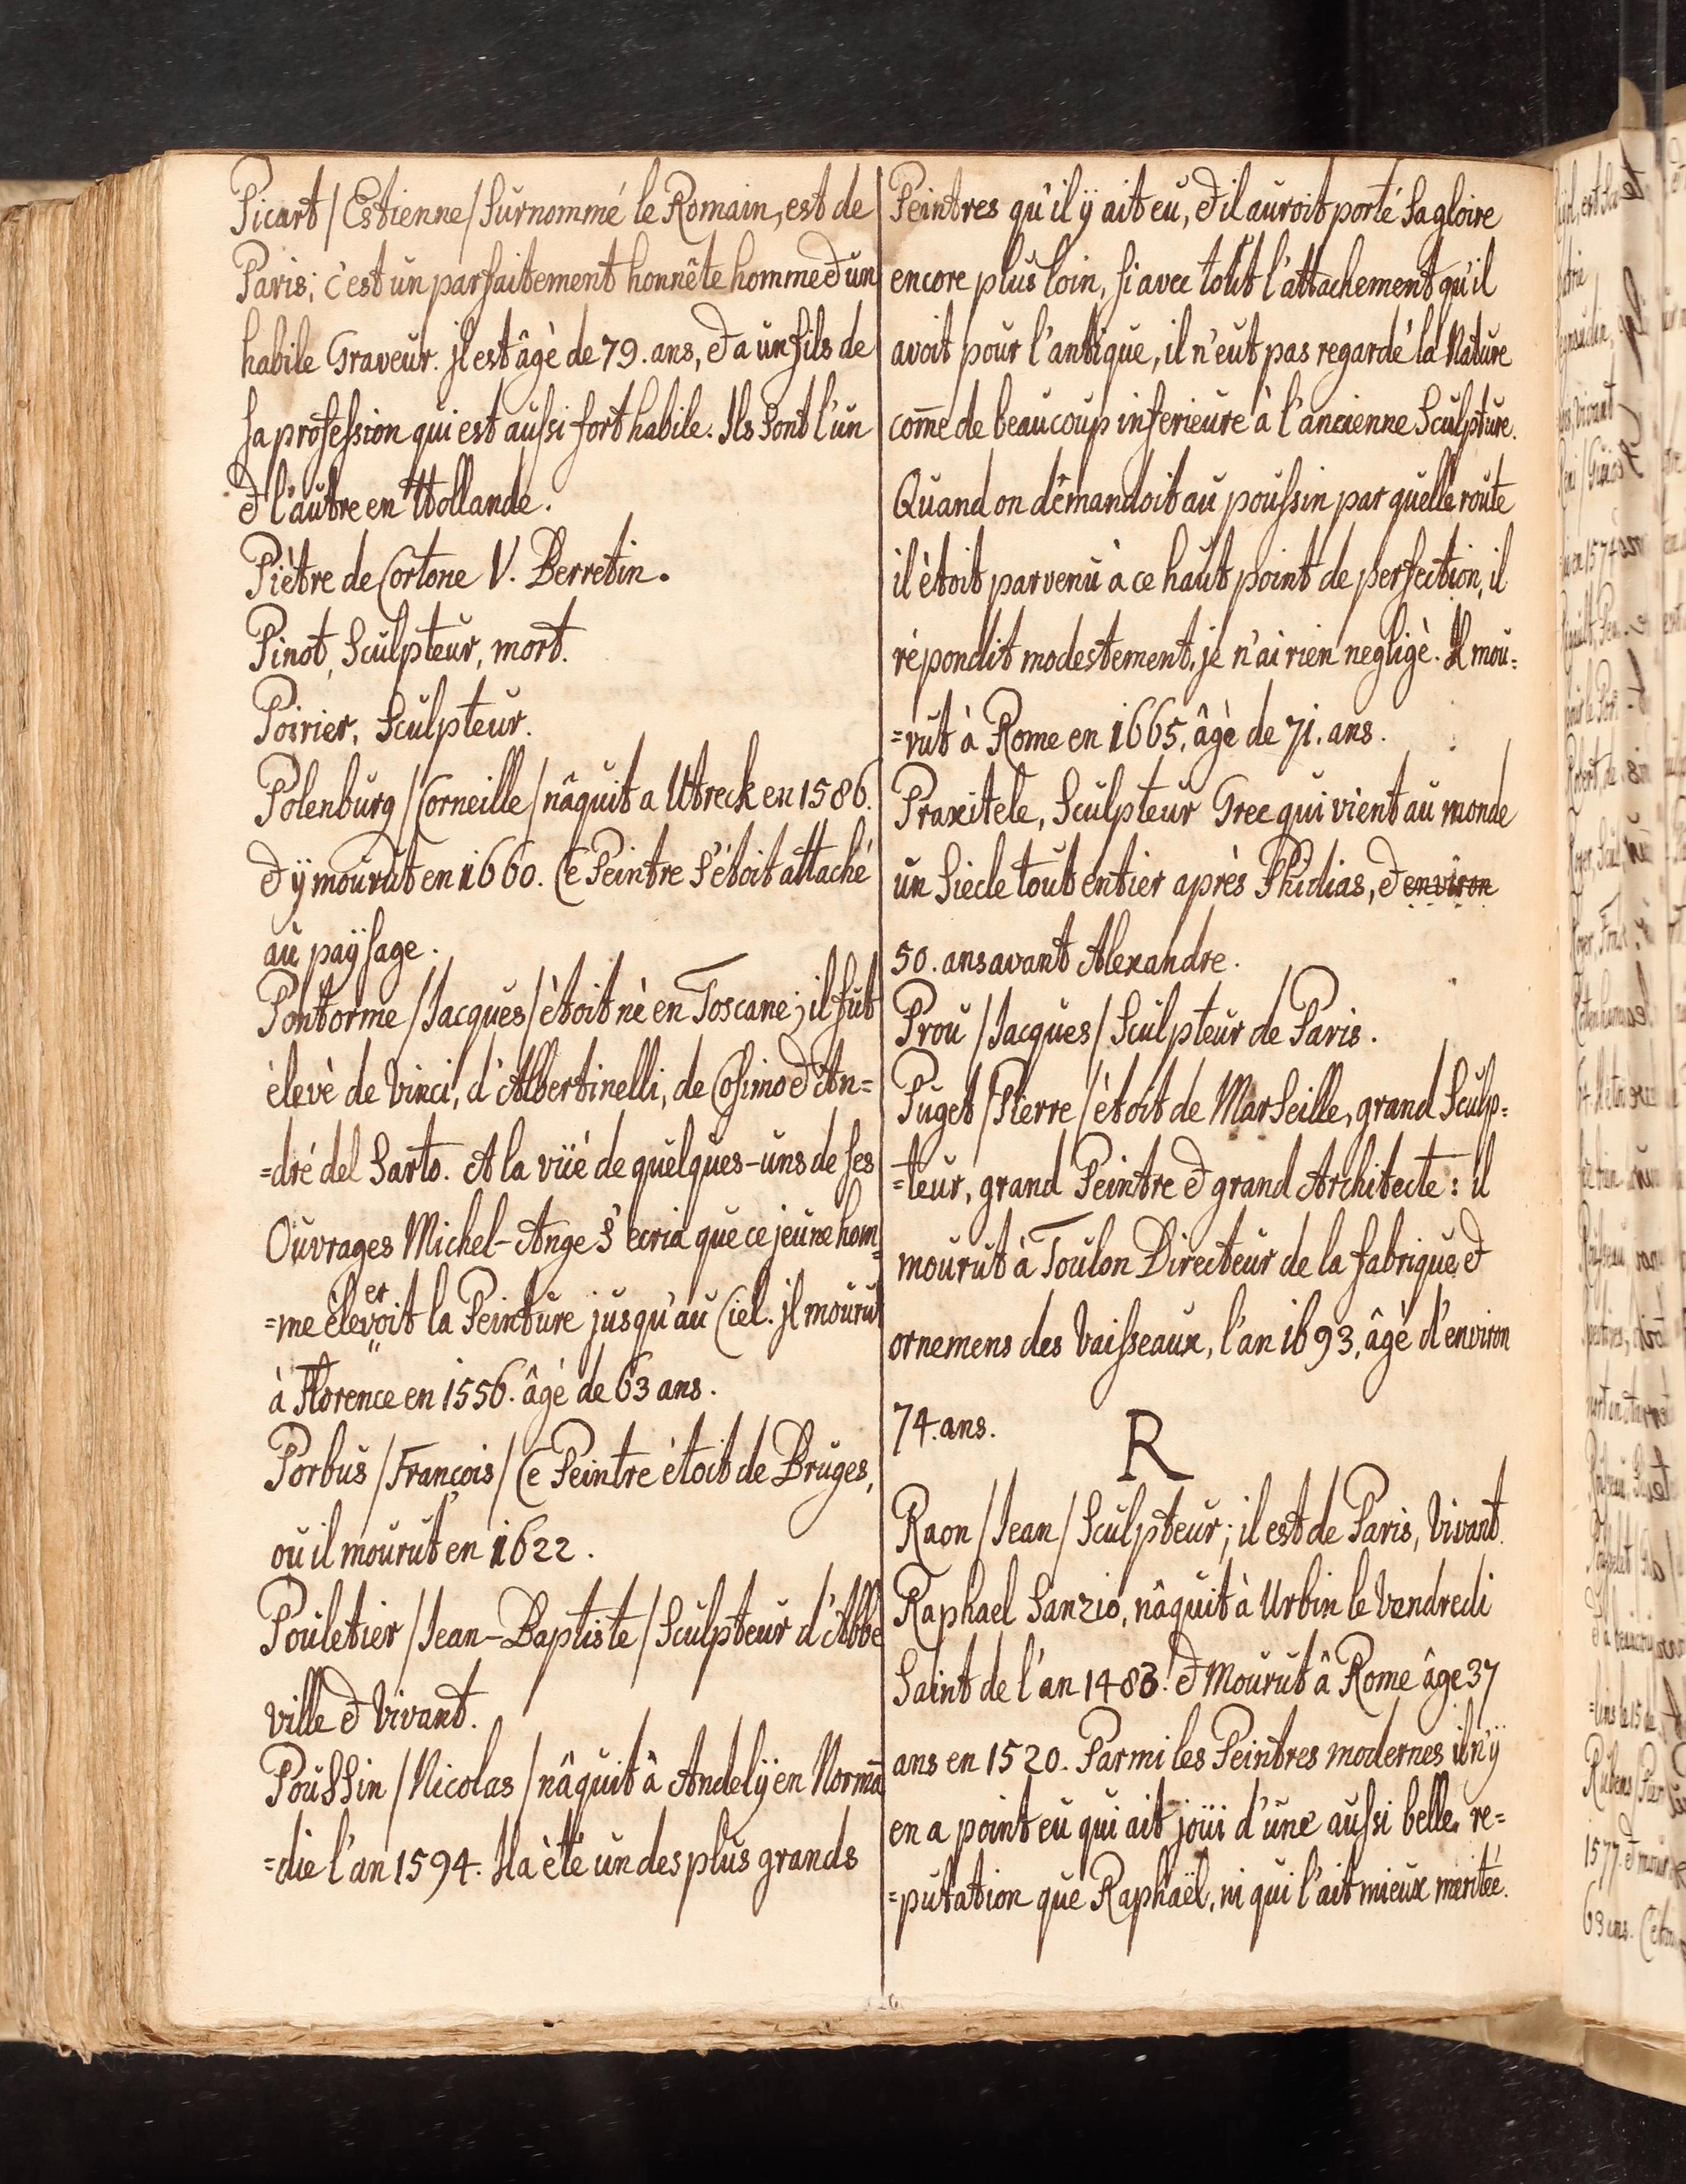 Picart / Estienne / surnommé le Romain, est de
Paris; c'est un parfaitement honnête homme & un
habile Graveur. jl est âgè de 79. ans, & a un fils de
sa profession qui est aussi fort habile. Ils sont l'un
& l'autre en Hollande.
Piètre de Cortone V. Berretin.
Pinot, Sculpteur, mort.
Poirier, Sculpteur.
Polenburg / Corneille / nâquit a Utreck en 1586.
& ÿ mourut en 1660. Ce Peintre s'étoit attaché
au païsage.
Pontorme / Jacques / ètoit nè en Toscane; il fut
èlevè de Vinci, d'Albertinelli, de Cosimo & An=
=dré del Sarto. A la vüè de quelques-uns de ses
Ouvrages Michel-Ange s'ecria que ce jeune hom=
=me èleveroit la Peinture jusqu'au Ciel. jl mourut
à Florence en 1556. âgé de 63 ans.
Porbus / François / Ce Peintre ètoit de Bruges,
ou il mourut en 1622.
Pouletier / Jean-Baptiste / Sculpteur d'Abbe
ville & vivant.
Poussin / Nicolas / nâquit à Andelÿ en Normā
=die l'an 1594. Il a ètè un des plus grands
Peintres qu'il ÿ ait eu, & il auroit porté sa gloire
encore plus loin, si avec tout l'attachement qu'il
avoit pour l'antique, il n'eut pas regardé la Nature
com̄e de beaucoup inferieure à l'ancienne Sculpture.
Quand on demandoit au poussin par quelle route
il ètoit parvenu à ce haut point de perfection, il
répondit modestement, je n'ai rien negligè. Il mou=
=rut à Rome en 1665. âgè de 71. ans.
Praxitele, Sculpteur Grec qui vient au monde
un Siecle tout entier après Phidias, & environ
50. ans avant Alexandre.
Prou / Jacques / Sculpteur de Paris.
Puget / Pierre / ètoit de Marseille, grand Sculp=
=teur, grand Peintre & grand Architecte: il
mourut à Toulon Directeur de la fabrique &
ornemens des Vaisseaux, l'an 1693, âgé d'environ
74. ans.
R
Raon / Jean / Sculpteur; il est de Paris, Vivant.
Raphael Sanzio, nâquit à Urbin le Vendredi
Saint de l'an 1483. & Mourut â Rome âge 37
ans en 1520. Parmi les Peintres modernes il n'ÿ
en a point eu qui ait joüi d'une aussi belle re=
=putation que Raphaël, ni qui l'ait mieux meritée.